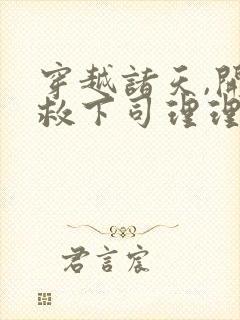 穿越諸天,開
救下司理理
君言宸